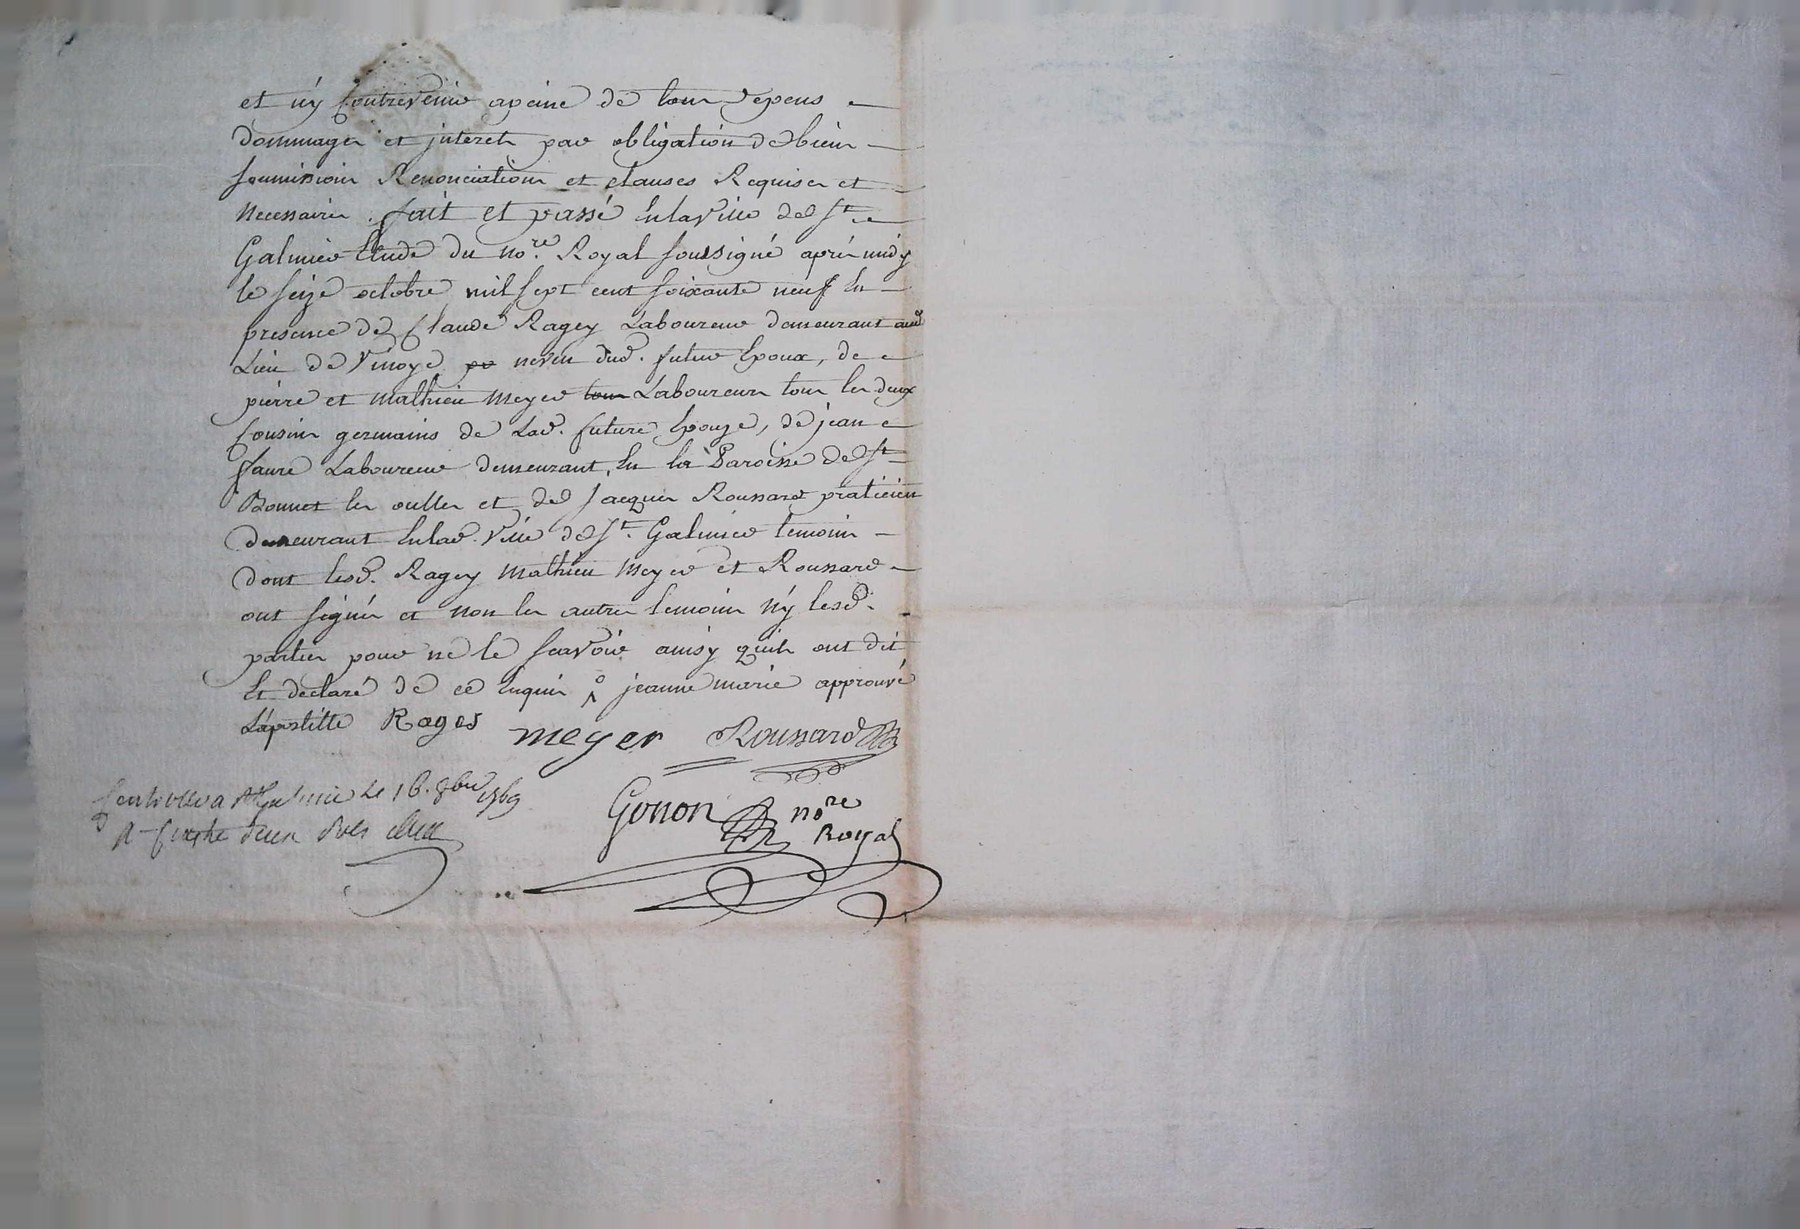 et n'y Contrevenir apeine de tous depens
dommages et jnterets par obligation de biens
soumissions Renonciations et clauses Requises et
necessaires. fait et passé En la ville de St
Galmier Etude du no.re Royal soussigné aprés midy
le seize octobre mil sept cent soixante neuf En
presence de Claude Ragey Laboureur demeurant aud
Lieu de Vinoye neveu dud. futur Epoux, de
pierre et mathieu meyer tous Laboureurs tous les deux
Cousins germains de Lad. future Epouze, de jean
faure Laboureur demeurant En la Paroisse de St
Bonnet les oulles et de Jacques Roussard praticien
demeurant En lad. Ville de St. Galmier temoins
dont lesd. Ragey mathieu meyer et Roussard
ont signés et non les autres temoins n'y lesd.
parties pour ne le scavoir ainsy quils ont dit
Et declaré de ce Enquis jeanne marie approuvé
L'apostille Rages meyer Roussard
Controllé a St Galmier Le 16. 8bre 1769
Gonon no.re
Royal